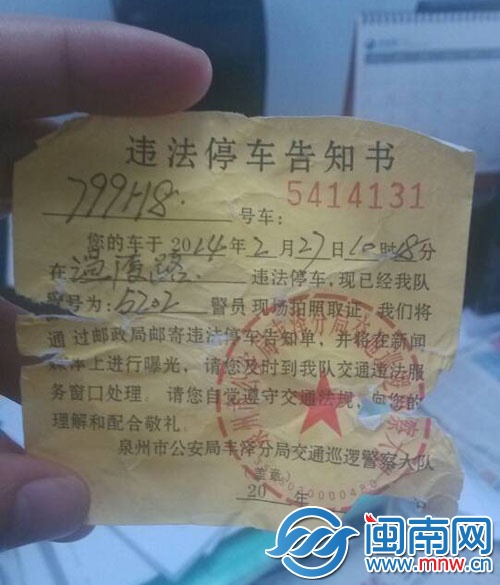 违法停车告知书
5414131
799H8.
号车：
您的车于2014年2月27日10时18分
在 路 违法停车，现已经我队
警号为：5202 警员现场拍照取证，我们将
通过邮政局邮寄违法停车告知单，并将在新闻
媒体上进行曝光，请您及时到我队交通违法服
务窗口处理。请您自觉遵守交通法规，向您的
理解和配合敬礼。
泉州市公安局丰泽分局交通巡逻警察大队
盖章
20 年
闽南网
www.mnw.cn